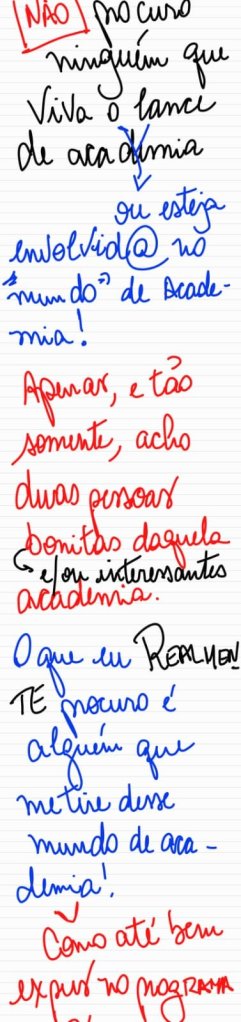 NÃO procuro
ninguém que
viva o lance
de academia
ou esteja
envolvid@ no
"mundo" de Acade-
mia!
Apenas, e tão
somente, acho
duas pessoas
bonitas daquela
e/ou interessantes
academia.
O que eu REALMEN
TE procuro é
alguém que
me tire desse
mundo de aca-
demia!
Como até bem
expus no programa